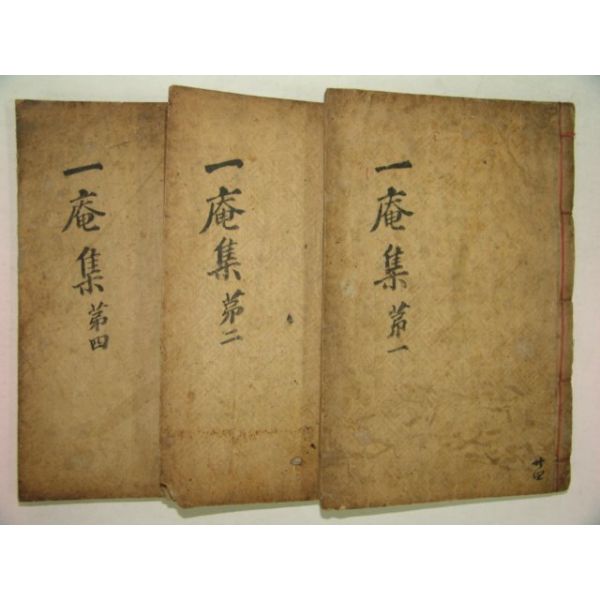 一庵集 第一
共四
一庵集 第二
一庵集 第四